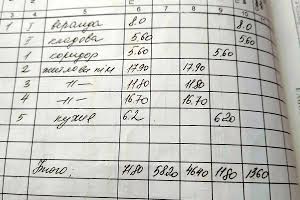 1 I веранда 8.0 8.0
I кладова 5.60 5.60
1 коридор 5.60 5.60
2 житлова кім 17.90 17.90
3 —//— 11.80 11.80
4 —//— 16.70 16.70
5 кухня 6.2 6.20
Итого: 7180 5820 4640 1180 1360